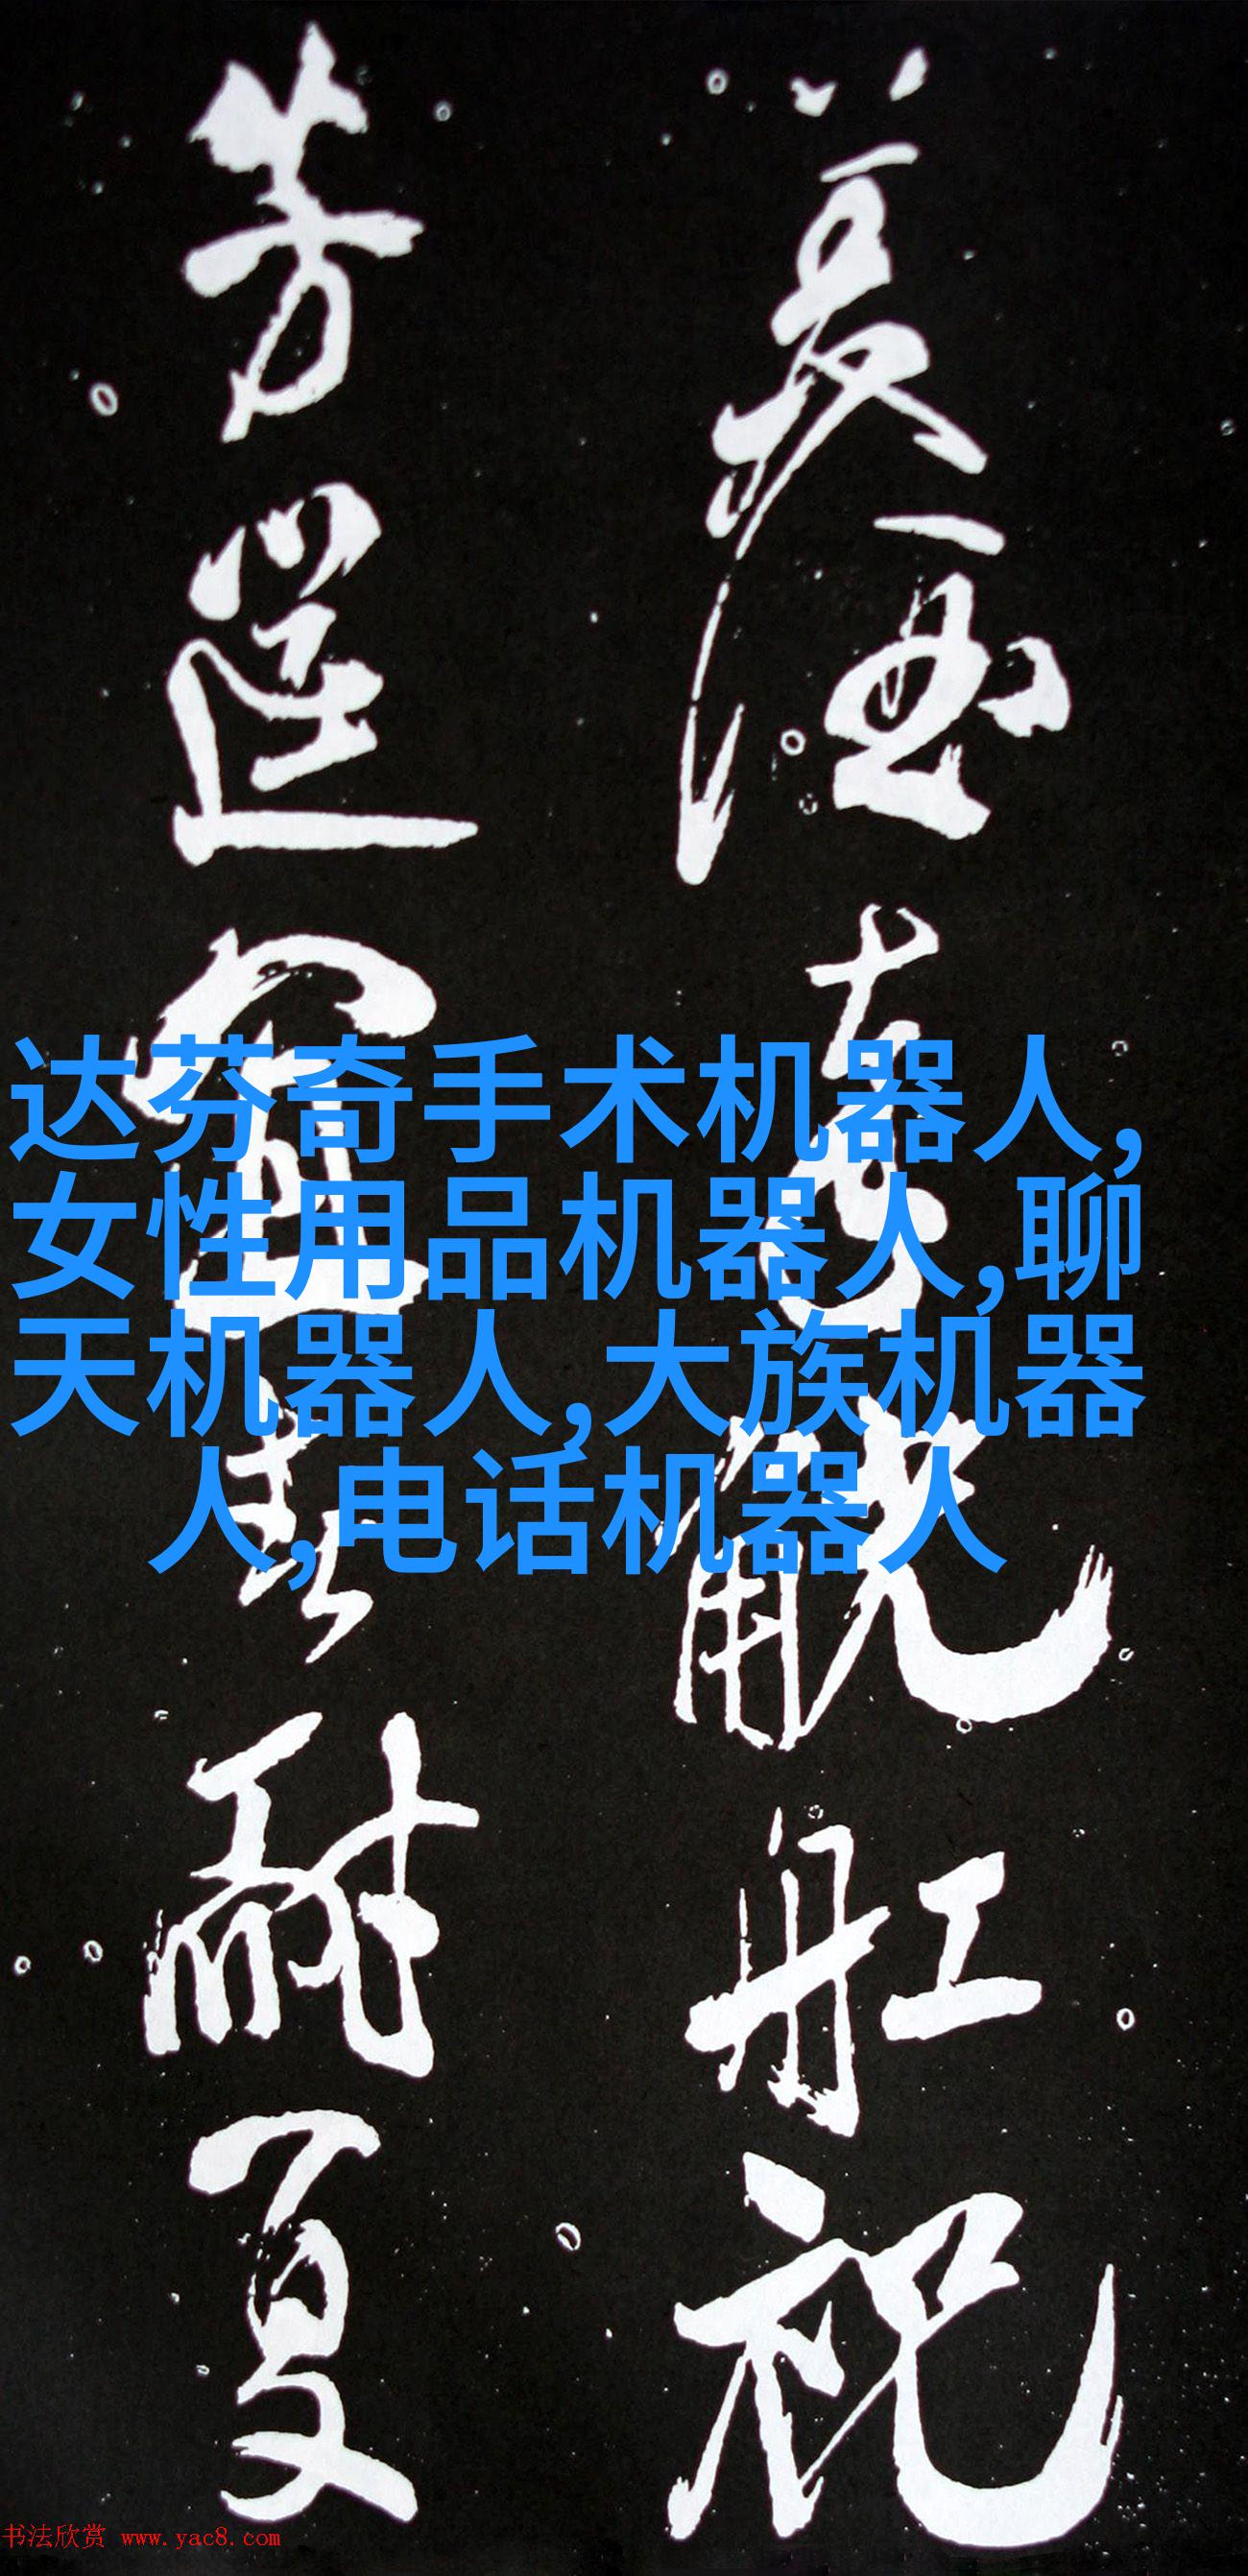 达芬奇手术机器人,
女性用品机器人,聊
天机器人,大族机器
人,电话机器人
觥舡祝
芳筵
耐夏
书法欣赏 www.yac8.com